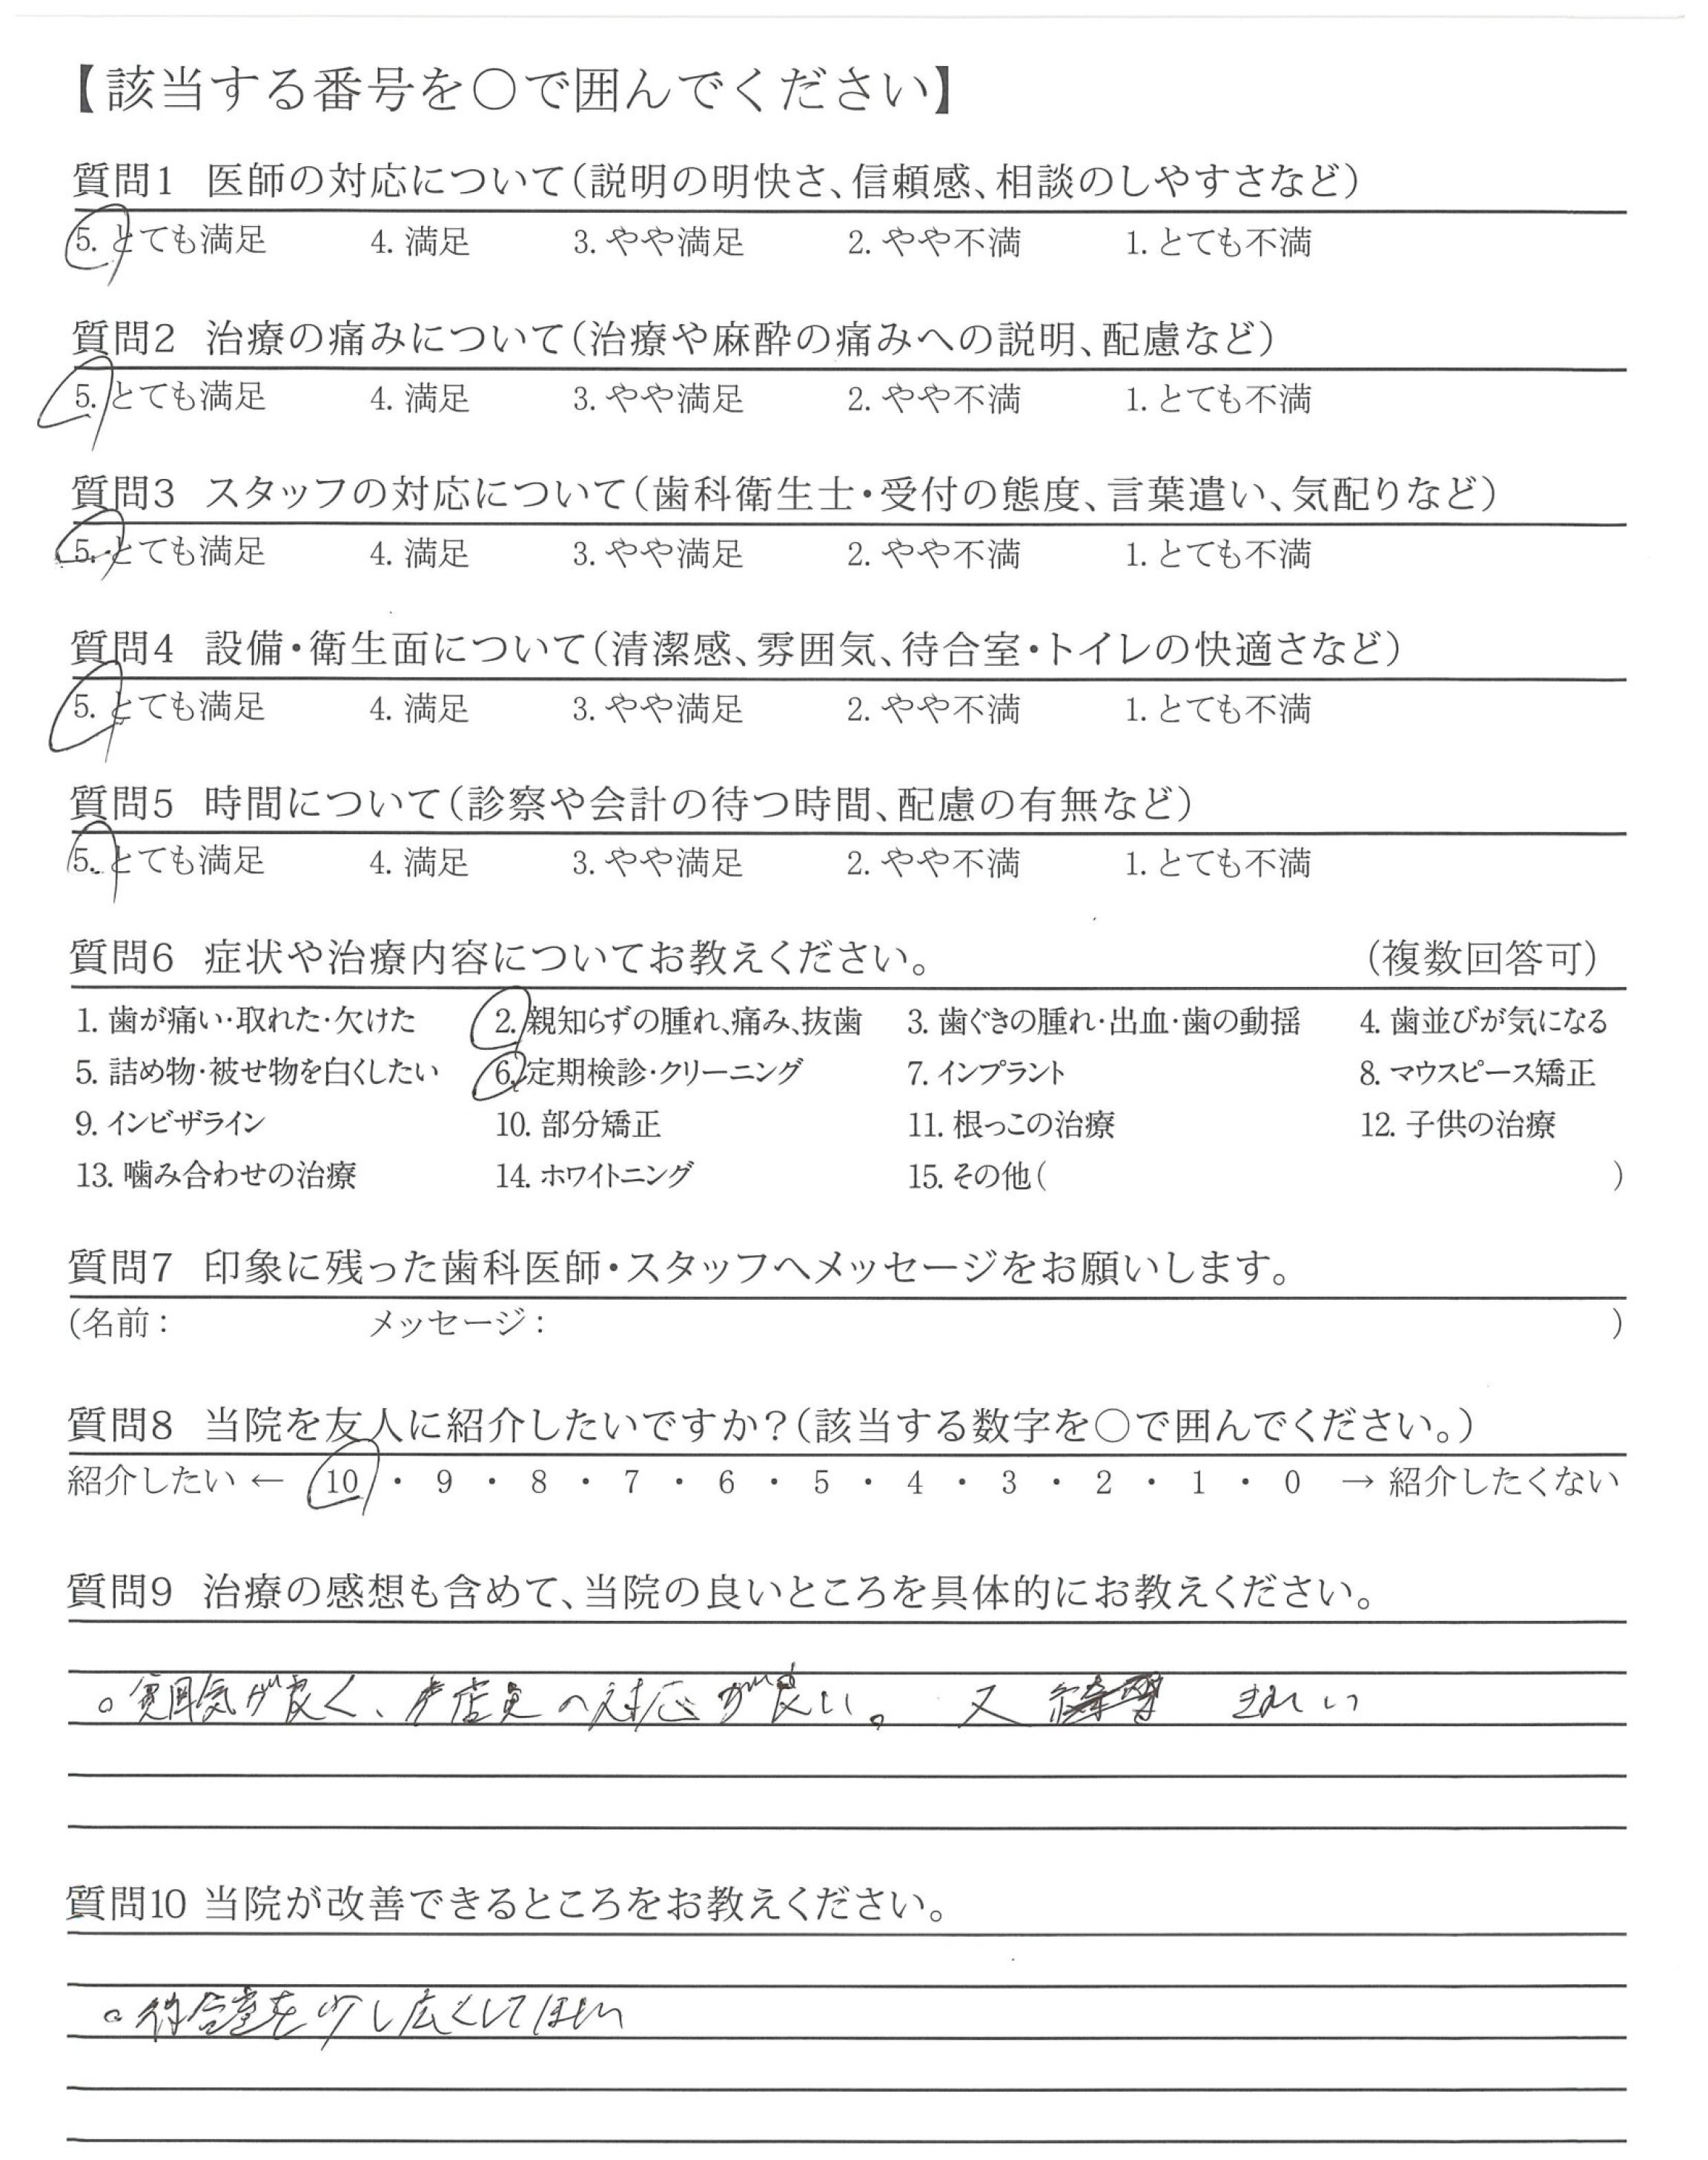 【該当する番号を○で囲んでください】
質問1 医師の対応について(説明の明快さ、信頼感、相談のしやすさなど)
5. とても満足 4. 満足 3. やや満足 2. やや不満 1. とても不満
質問2 治療の痛みについて(治療や麻酔の痛みへの説明、配慮など)
5. とても満足 4. 満足 3. やや満足 2. やや不満 1. とても不満
質問3 スタッフの対応について(歯科衛生士・受付の態度、言葉遣い、気配りなど)
5. とても満足 4. 満足 3. やや満足 2. やや不満 1. とても不満
質問4 設備・衛生面について(清潔感、雰囲気、待合室・トイレの快適さなど)
5. とても満足 4. 満足 3. やや満足 2. やや不満 1. とても不満
質問5 時間について(診察や会計の待つ時間、配慮の有無など)
5. とても満足 4. 満足 3. やや満足 2. やや不満 1. とても不満
質問6 症状や治療内容についてお教えください。 (複数回答可)
1. 歯が痛い・取れた・欠けた 2. 親知らずの腫れ、痛み、抜歯 3. 歯ぐきの腫れ・出血・歯の動揺 4. 歯並びが気になる
5. 詰め物・被せ物を白くしたい 6. 定期検診・クリーニング 7. インプラント 8. マウスピース矯正
9. インビザライン 10. 部分矯正 11. 根っこの治療 12. 子供の治療
13. 噛み合わせの治療 14. ホワイトニング 15. その他( )
質問7 印象に残った歯科医師・スタッフへメッセージをお願いします。
(名前: メッセージ: )
質問8 当院を友人に紹介したいですか?(該当する数字を○で囲んでください。)
紹介したい ← 10 ・ 9 ・ 8 ・ 7 ・ 6 ・ 5 ・ 4 ・ 3 ・ 2 ・ 1 ・ 0 → 紹介したくない
質問9 治療の感想も含めて、当院の良いところを具体的にお教えください。
。雰囲気が良く、店員の対応が良い。又 きれい
質問10 当院が改善できるところをお教えください。
。待合室を少し広くしてほしい